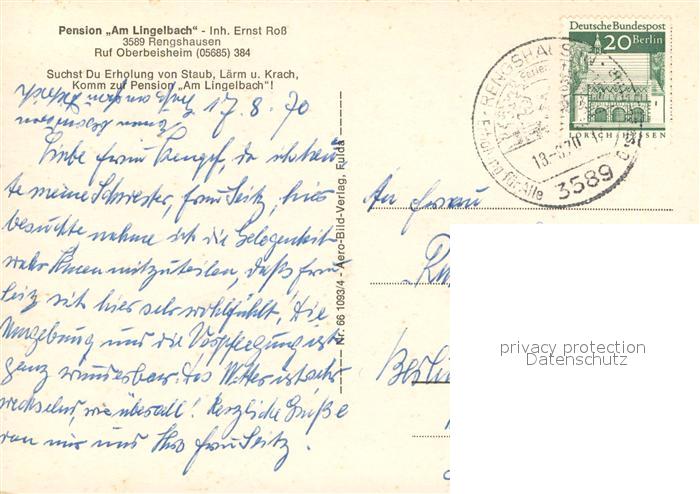 Pension „Am Lingelbach“ - Inh. Ernst Roß
3589 Rengshausen
Ruf Oberbeisheim (05685) 384
Suchst Du Erholung von Staub, Lärm u. Krach,
Komm zur Pension „Am Lingelbach“!
17. 8. 70
Liebe Frau Bengel, da ich heu
te meine Schwester, Frau Seitz, hier
besuchte nehme ich die Gelegenheit
wahr Ihnen mitzuteilen, daß Frau
Seitz sich hier sehr wohlfühlt, Die
Umgebung und die Verpflegung ist
ganz wunderbar. Das Wetter ist sehr
wechselnd, wie überall! Herzliche Grüße
von mir und Ihre Frau Seitz.
Nr. 66 1093/4 - Aero-Bild-Verlag, Fulda
Deutsche Bundespost
20 Berlin
LORSCH/HESSEN
RENGSHAUSEN
3589
für Alle
An Frau
Berlin
privacy protection
Datenschutz